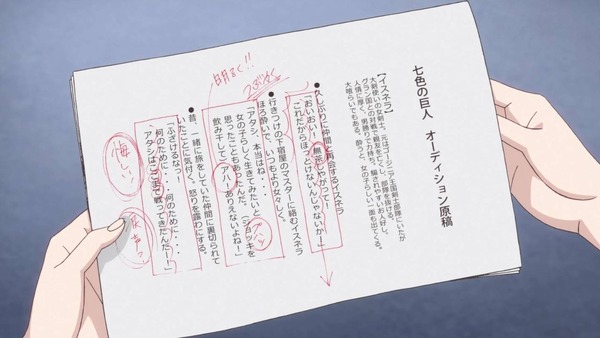 七色の巨人　オーディション原稿
【イスネラ】
大剣使いの女剣士。元はゴージニア王国剣士部隊にいたが
グラン国との対戦で親友を亡くし、部隊を抜ける。
人情に厚く、男勝りで力持ち。騙されやすいお人好し。
大喰らいでもある。酔うと、女の子らしい一面も出てくる。
●久しぶりに仲間と再会するイスネラ
「おいおい！　無茶しやがって！
これだからほっとけないんじゃないかー！」
●行きつけの下宿屋のマスターに絡むイスネラ
ほろ酔いで、いつもより女々しく。
「アタシ、本当はね・・・
女の子らしく生きてみたいと
思ったこともあったんだ。（ジョッキを
飲み干して）プハー ありえないよね！」
●昔、一緒に旅をしていた仲間に裏切られて
いたことに気付く。怒りを露わにする。
「ふざけるなっー！
何のために・・・何のために・・・
アタシはここまで戦ってきたんだー！」
明るく!!
悔しい